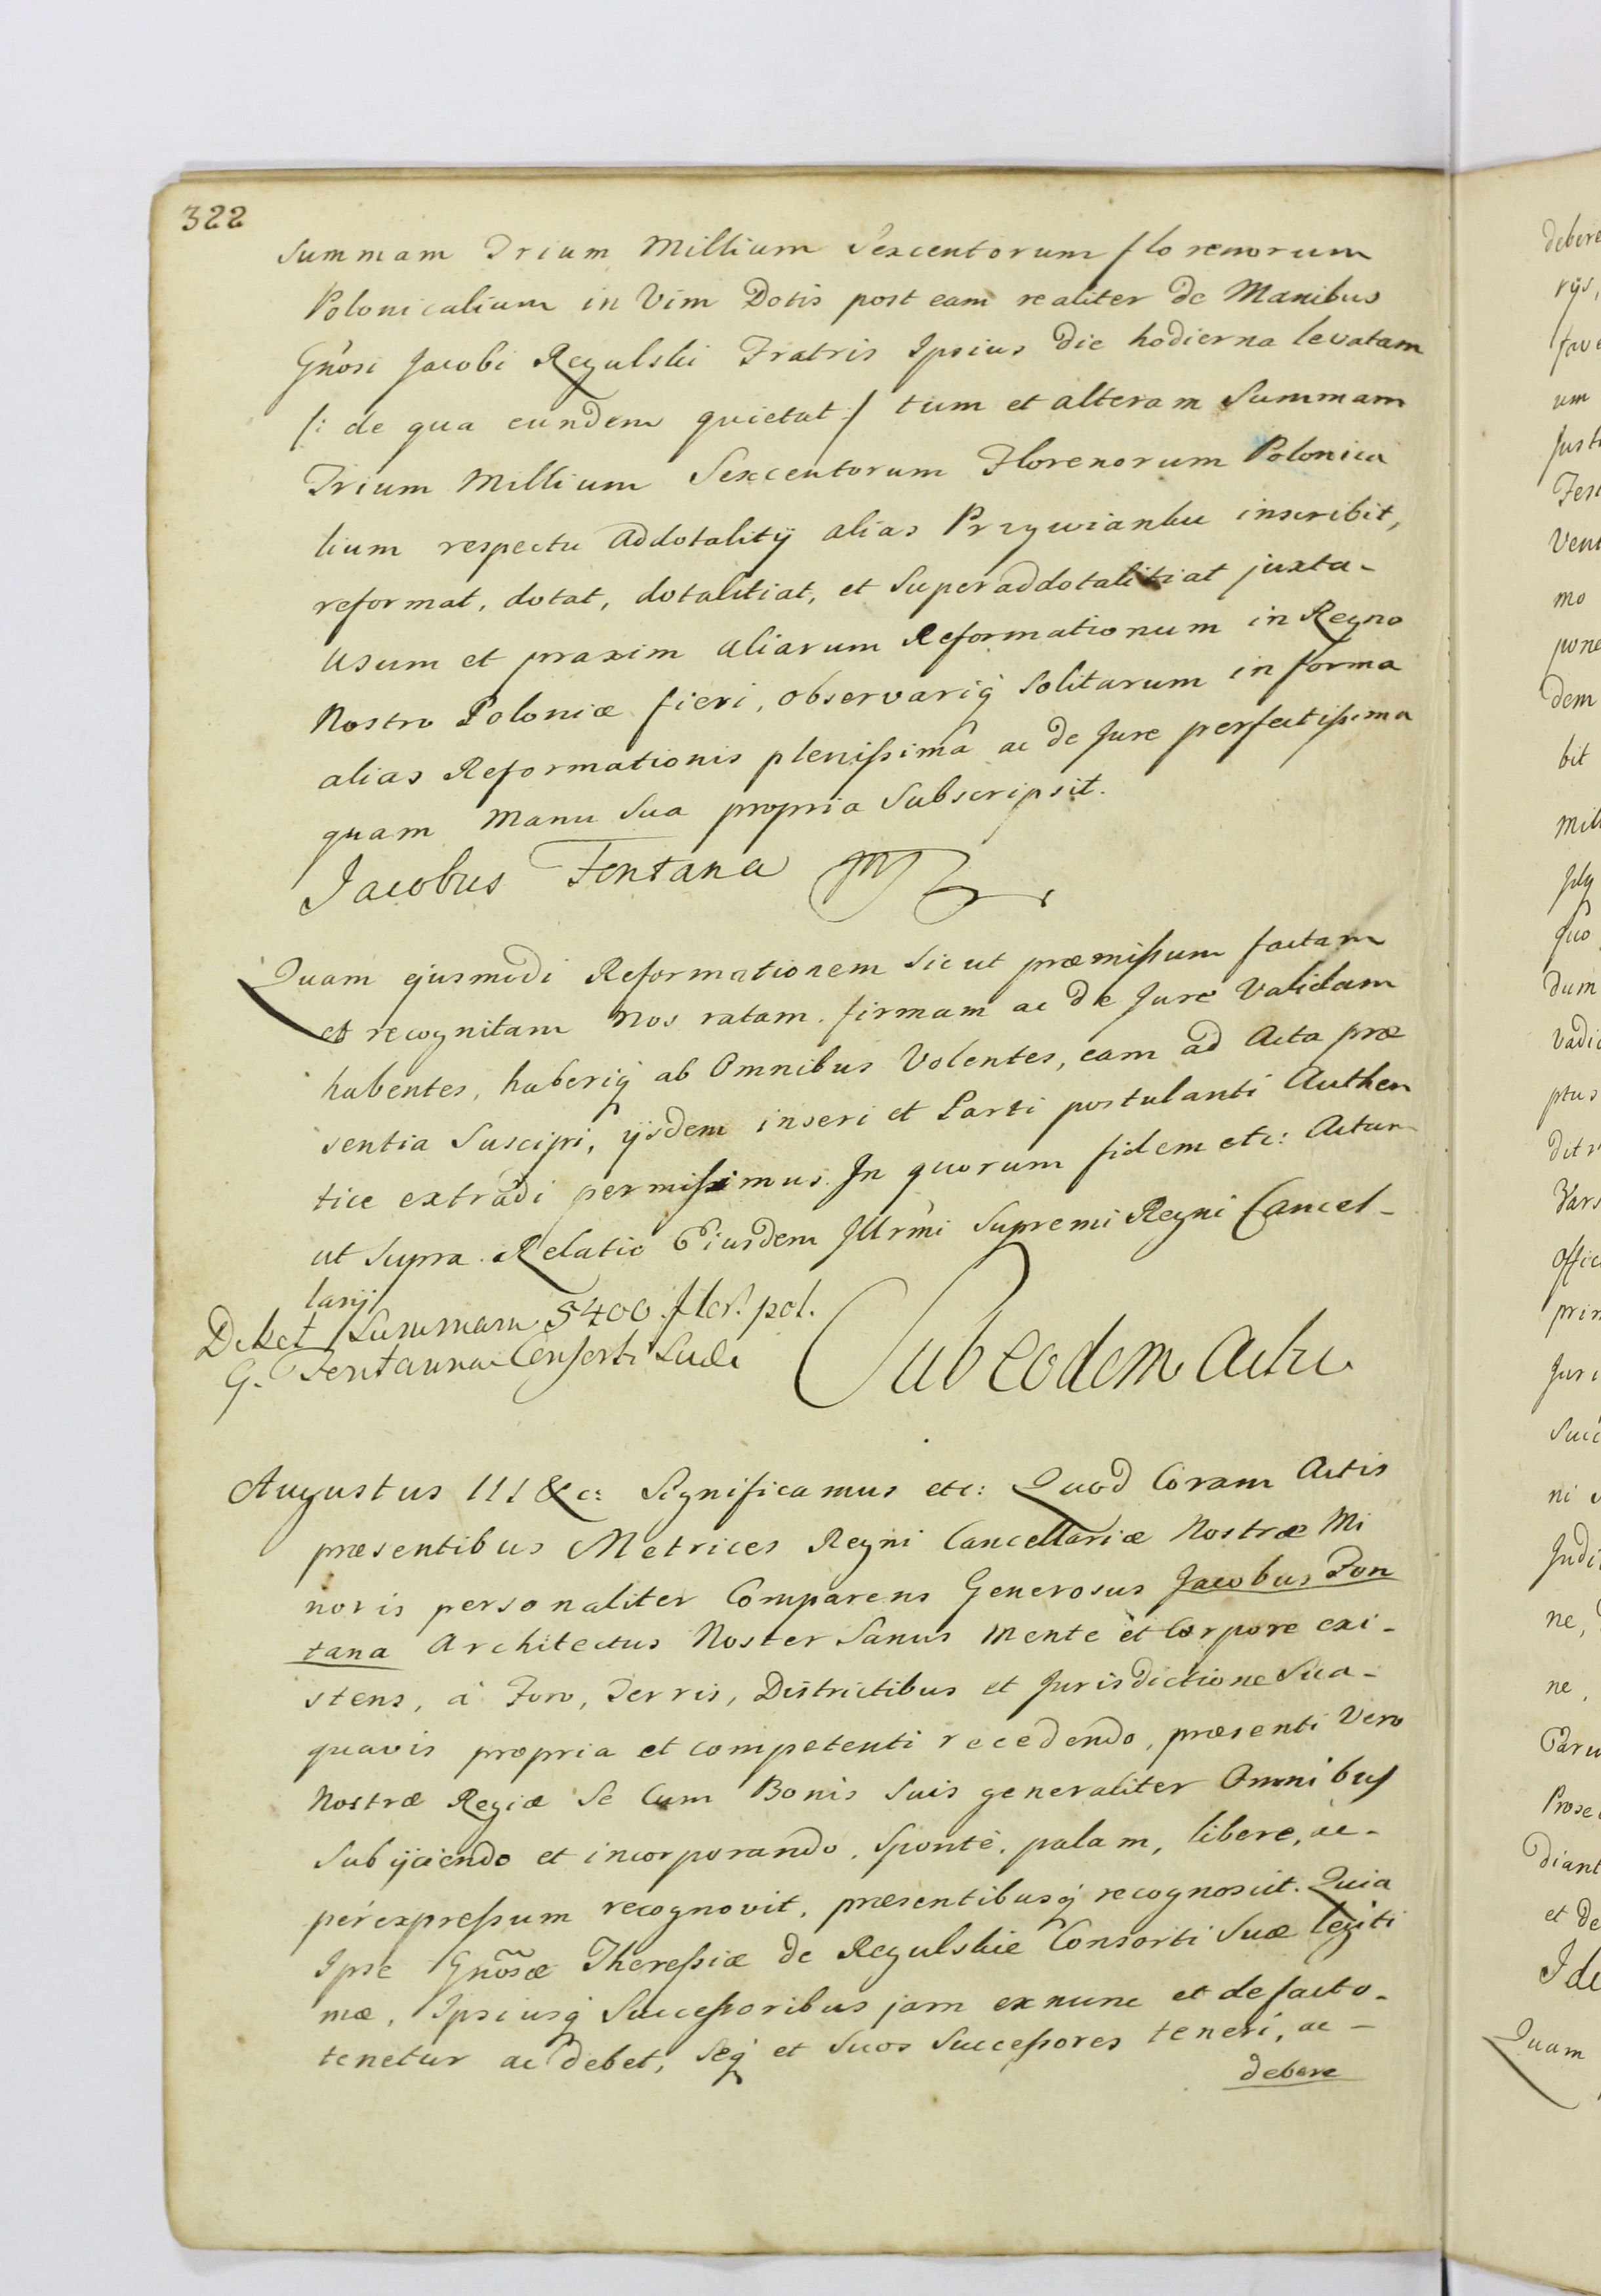 322
Summam Trium Millium Sexcentorum florenorum
Polonicalium in Vim Dotis post eam realiter de Manibus
Gnosi Jacobi Regulski Fratris Ipsius die hodierna levatam
/: de qua eundem quietat :/ tum et alteram Summam
Trium Millium Sexcentorum Florenorum Polonica
lium respectu Addotalitÿ alias Przywianku inscribit,
reformat, dotat, dotalitiat, et Superaddotalitiat juxta-
Usum et praxim aliarum Reformationum in Regno
Nostro Poloniæ fieri, observariq́ Solitarum in forma
alias Reformationis plenissimâ ac de Jure perfectissima
quam Manu Sua propria Subscripsit.
Jacobus Fontana mp
Quam ejusmodi Reformationem Sicut præmissum factam
et recognitam Nos ratam. firmam ac de Jure Validam
habentes, haberiq́ ab Omnibus Volentes, eam ad Acta præ
sentia Suscipi, ÿsdem inseri et Parti postulanti Authen
tice extradi permisimus. In quorum fidem etc: Actum
ut Supra. Relatio Eiusdem Illr̃mi Supremi Regni Cancel-
larÿ
Debet Summam 5400 flor. pol.
G. Fontanna Consorti Suæ
Sub eodem Actu
Augustus III &c: Significamus etc: Quod Coram Actis
præsentibus Metrices Regni Cancellariæ Nostræ Mi
noris personaliter Comparens Generosus Jacobus Fon
tana Architectus Noster Sanus Mente et Corpore exi-
stens, á Foro, Terris, Districtibus et Jurisdictione Sua-
quavis propria et competenti recedendo, præsenti Vero
Nostræ Regiæ Se Cum Bonis Suis generaliter Omnibus
Subÿciendo et incorporando. Sponté. palam, libere, ac-
pér expressum recognovit, præsentibusq́ recognoscit. Quia
Ipse Gnõsæ Theressiæ de Regulskie Consorti Suæ legiti
mæ, Ipsiusq́ Successoribus jam exnunc et defacto-
tenetur ac debet, Seq́ et Suos Successores teneri, ac-
debere
debere
rÿs,
um
Ven
mo
pone
dem
bit
Mill
quo
dum
vadi
ptus
Vars
Offic
prin
Juri
Succ
ni
Judi
ne,
ne,
Prose
diant
et de
Quam